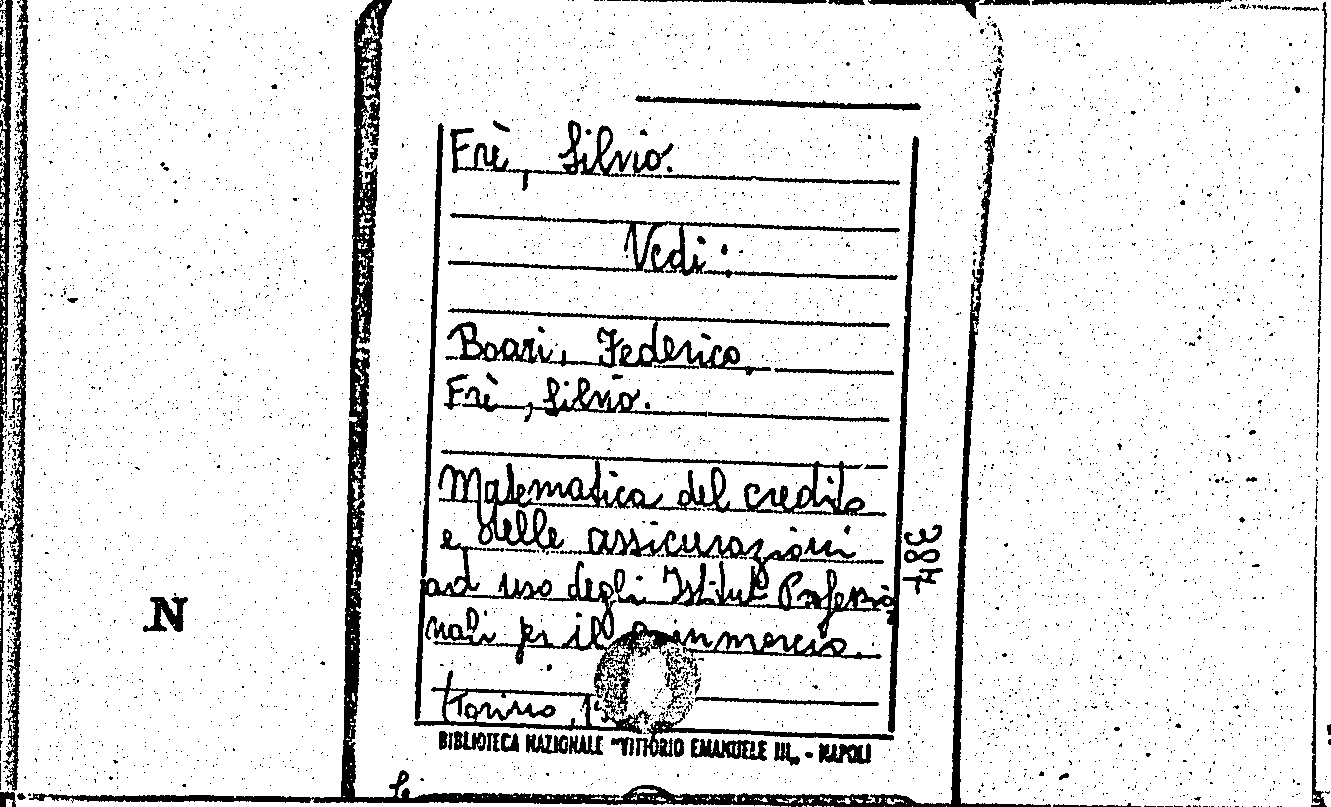 Frè, Silvio.
Vedi:
Boari, Federico,
Frè, Silvio.
Matematica del credito
e delle assicurazioni
ad uso degli Istituti Professio
nali per il Commercio.
Torino, 19
BIBLIOTECA NAZIONALE "VITTORIO EMANUELE III„ - NAPOLI
N